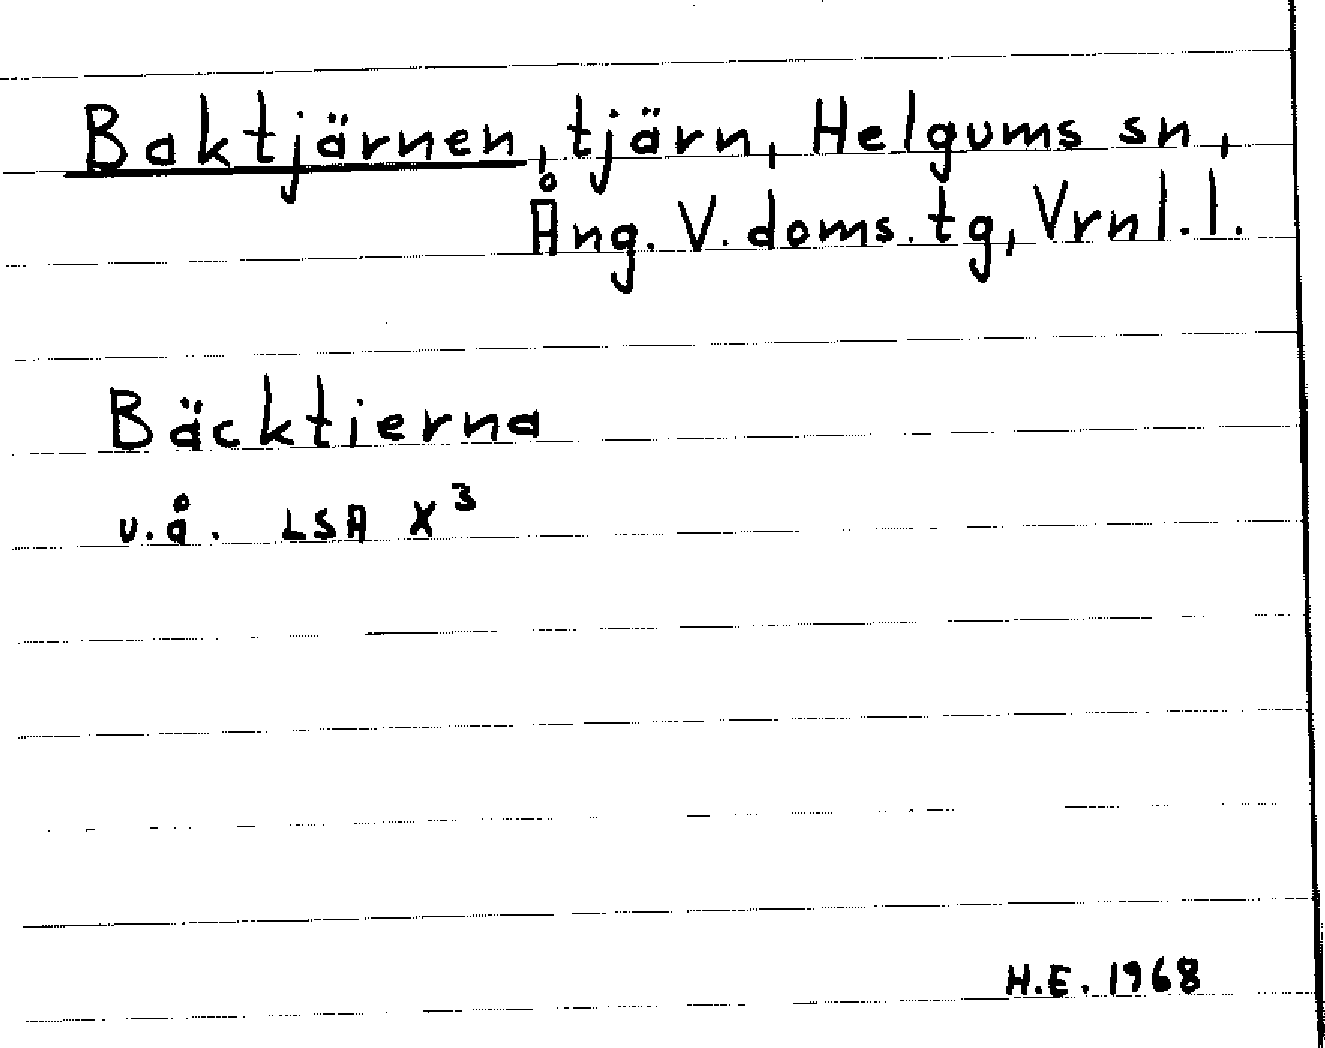 Baktjärnen, tjärn, Helgums sn,
Ång. V. doms. tg, Vrnl. l.
Bäcktierna
u.å. LSA X³
H.E. 1968